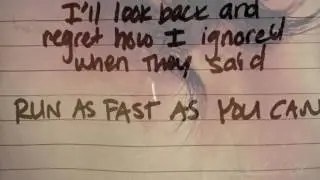 I'll look back and
regret how I ignored
when they said
RUN AS FAST AS YOU CAN